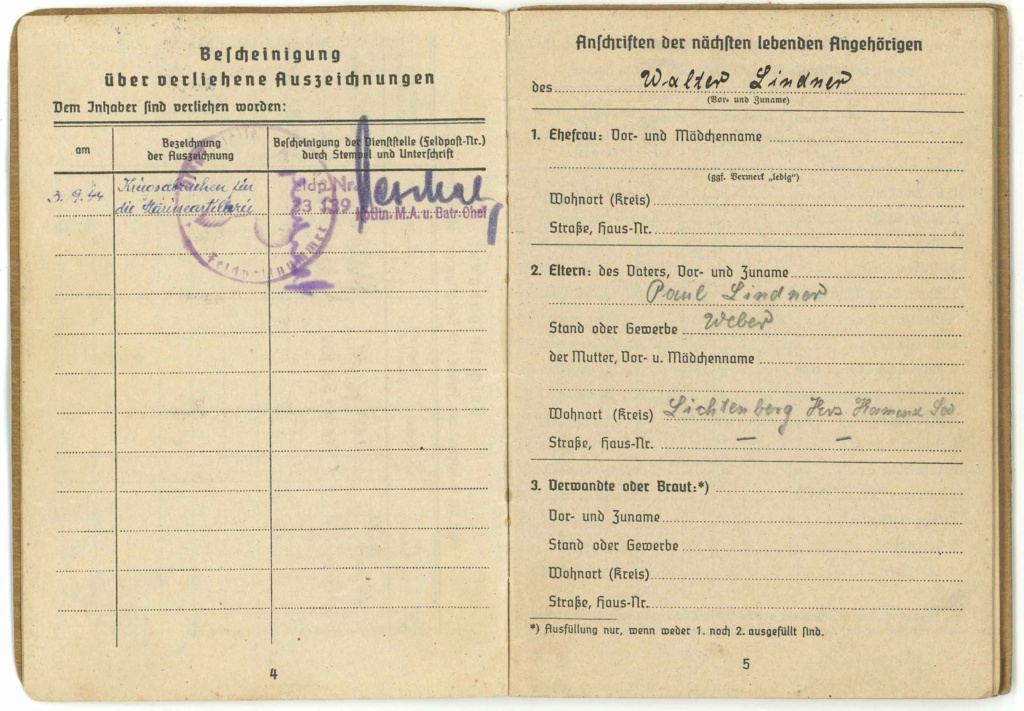 Bescheinigung
über verliehene Auszeichnungen
Dem Inhaber sind verliehen worden:
am
Bezeichnung
der Auszeichnung
Bescheinigung der Dienststelle (Feldpost-Nr.)
durch Stempel und Unterschrift
3. 9. 44
für
die Marineartillerie
Feldp. Nr.
23 139
M.A. u. Battr. Chef
4
Anschriften der nächsten lebenden Angehörigen
des Walter Lindner
(Vor- und Zuname)
1. Ehefrau: Vor- und Mädchenname
(ggf. Vermerk „ledig“)
Wohnort (Kreis)
Straße, Haus-Nr.
2. Eltern: des Vaters, Vor- und Zuname
Paul Lindner
Stand oder Gewerbe Weber
der Mutter, Vor- u. Mädchenname
Wohnort (Kreis) Lichtenberg Krs Kamenz
Straße, Haus-Nr. – –
3. Verwandte oder Braut:*)
Vor- und Zuname
Stand oder Gewerbe
Wohnort (Kreis)
Straße, Haus-Nr.
*) Ausfüllung nur, wenn weder 1. noch 2. ausgefüllt sind.
5